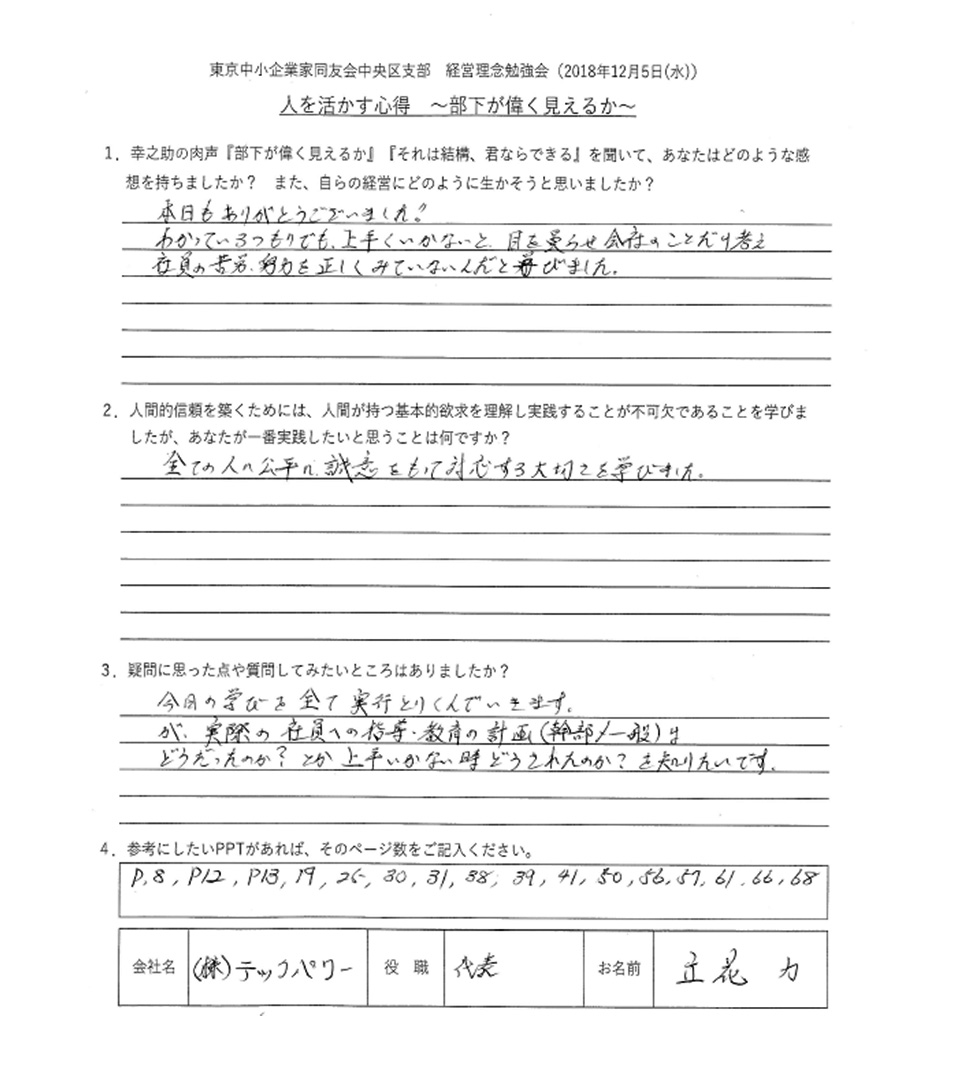 東京中小企業家同友会中央区支部　経営理念勉強会（2018年12月5日(水)）
人を活かす心得　～部下が偉く見えるか～
1．幸之助の肉声『部下が偉く見えるか』『それは結構、君ならできる』を聞いて、あなたはどのような感
想を持ちましたか？　また、自らの経営にどのように生かそうと思いましたか？
本日もありがとうございました！
わかっているつもりでも、上手くいかないと、目を曇らせ会社のことだけ考え
社員の苦労、努力を正しくみていないんだと学びました。
2．人間的信頼を築くためには、人間が持つ基本的欲求を理解し実践することが不可欠であることを学びま
したが、あなたが一番実践したいと思うことは何ですか？
全ての人に公平に、誠意をもって対応する大切さを学びました。
3．疑問に思った点や質問してみたいところはありましたか？
今日の学びを全て実行とりくんでいきます。
が、実際の社員への指導・教育の計画（幹部/一般）は
どうだったのか？とか上手いかない時どうされたのか？を知りたいです。
4．参考にしたいPPTがあれば、そのページ数をご記入ください。
P.8, P12, P13, 19, 25, 30, 31, 38, 39, 41, 50, 56, 57, 61, 66, 68
会社名 (株)テックパワー 役 職 代表 お名前 立花 力